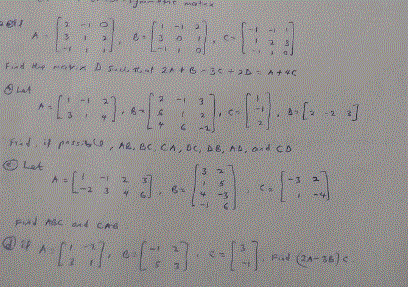 symmetric matrix
A = [2 -1 0; 3 1 2; -1 1 1], B = [1 -1 2; 3 0 1; -1 1 0], C = [-1 -1 1; 1 2 3; -1 1 0]
Find the matrix D such that 2A + B - 3C + 2D = A + 4C
Let
A = [1 -1 2; 3 1 4], B = [2 -1 3; 5 1 2; 4 6 -2], C = [1; -1; 2], D = [2 -2 3]
Find, if possible, AB, BC, CA, DC, DB, AD, and CD
Let
A = [1 -1 2 3; -2 3 4 6], B = [3 2; 1 5; 4 -3; -1 6], C = [-3 2; 1 -4]
Find ABC and CAB
(d) if A = [1 -2; 3 1], B = [-1 2; 5 3], C = [3; -1], Find (2A-3B)C